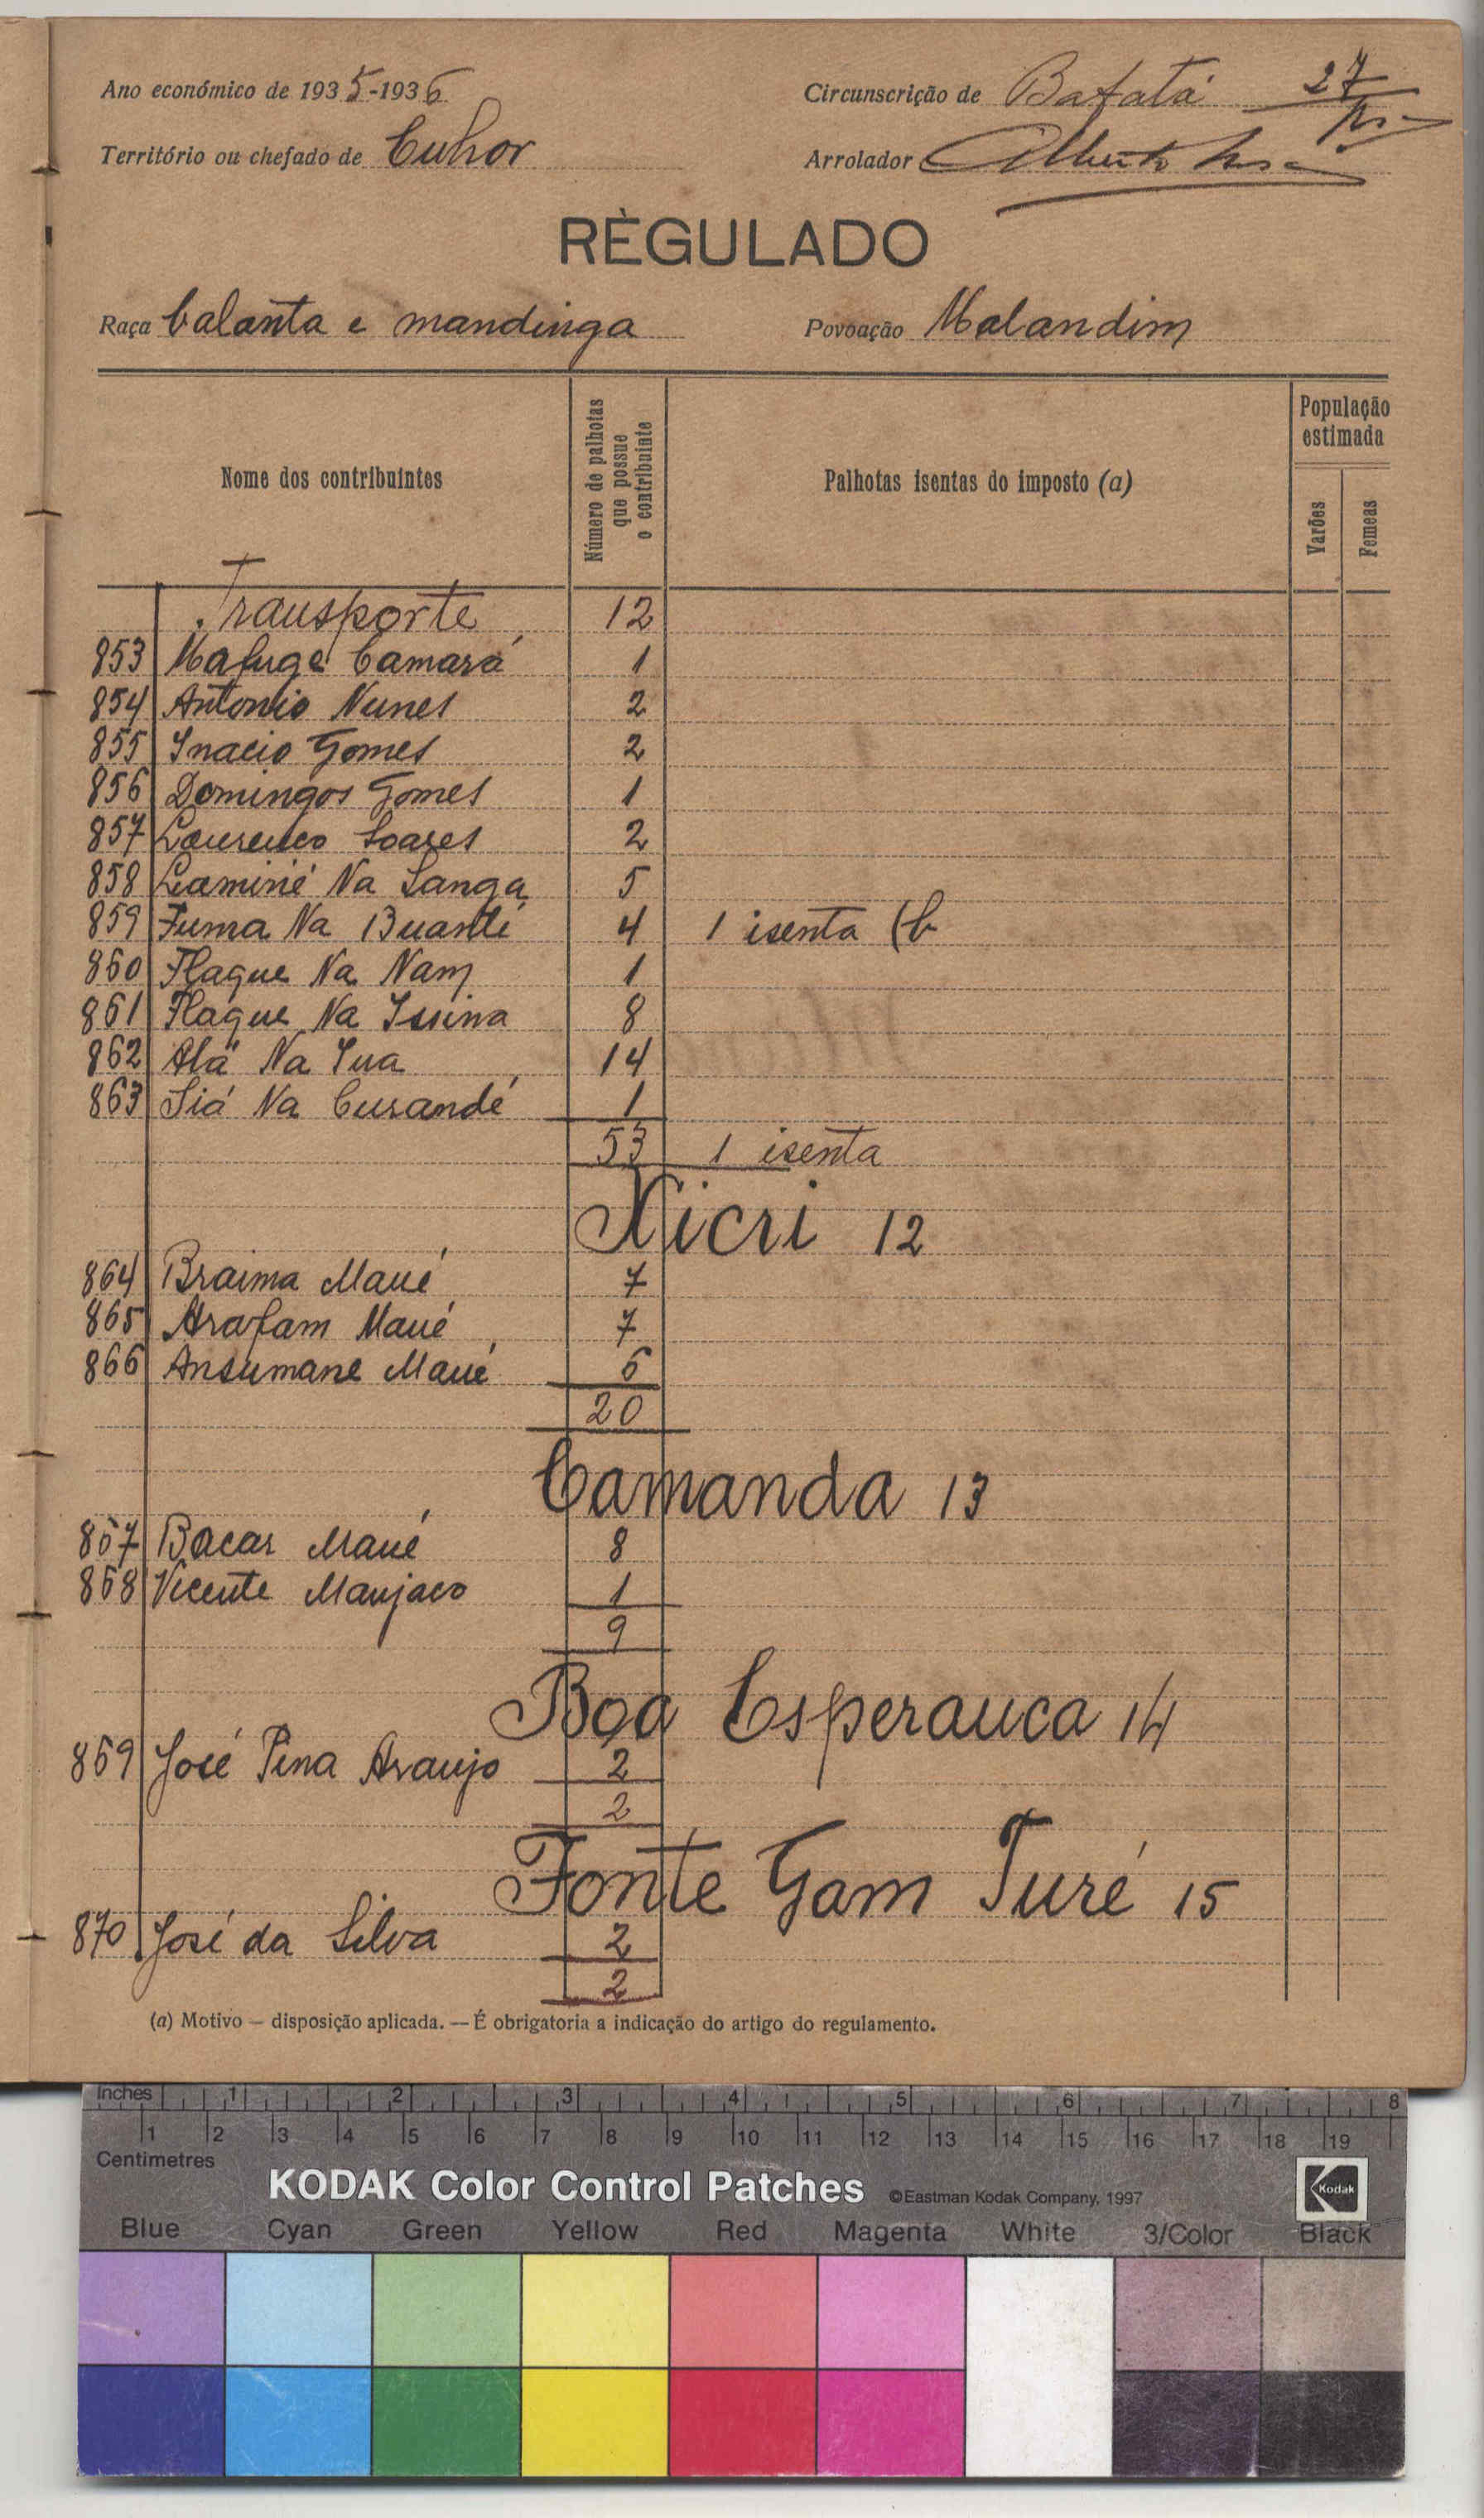 Ano económico de 1935-1936 Circunscrição de Bafatá 27
Território ou chefado de Cuhor Arrolador Alberto
RÈGULADO
Raça balanta e mandinga Povoação Malandim
Nome dos contribuintes Número de palhotas que possue o contribuinte Palhotas isentas do imposto (a) População estimada Varões Femeas
Transporte 12
853 Mafuge Camará 1
854 Antonio Nunes 2
855 Inacio Gomes 2
856 Domingos Gomes 1
857 Lourenco Soares 2
858 Laminé Na Sanga 5
859 Fuma Na Buanté 4 1 isenta (b
860 Flaque Na Nam 1
861 Flaque Na Issina 8
862 Alá Na Tua 14
863 Siá Na Curandé 1
53 1 isenta
Xicri 12
864 Braima Mané 7
865 Arafam Mané 7
866 Ansumane Mané 6
20
Camanda 13
867 Bacar Mané 8
868 Vicente Manjaco 1
9
Boa Esperanca 14
869 José Pina Araujo 2
2
Fonte Gam Turé 15
870 José da Silva 2
2
(a) Motivo — disposição aplicada. — É obrigatoria a indicação do artigo do regulamento.
Inches 1 2 3 4 5 6 7 8
1 2 3 4 5 6 7 8 9 10 11 12 13 14 15 16 17 18 19
Centimetres
KODAK Color Control Patches ©Eastman Kodak Company, 1997 Kodak
Blue Cyan Green Yellow Red Magenta White 3/Color Black